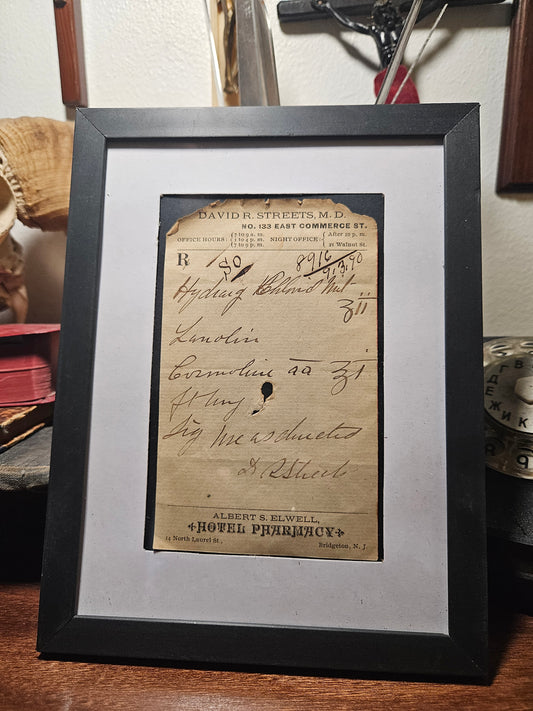 DAVID R. STREETS, M. D.
NO. 133 EAST COMMERCE ST.
OFFICE HOURS: { 7 to 9 a. m. 3 to 4 p. m. 7 to 9 p. m. } NIGHT OFFICE: { After 10 p. m. 21 Walnut st.
R 50 8916
9.3.90
Hydrarg Chlorid Mit ʒii
Lanolin
Cosmoline aa ʒi
ft ung
Sig Use as directed
D R Streets
ALBERT S. ELWELL,
HOTEL PHARMACY
14 North Laurel St., Bridgeton, N. J.
Г
В
Д
Е
Ж
И
К